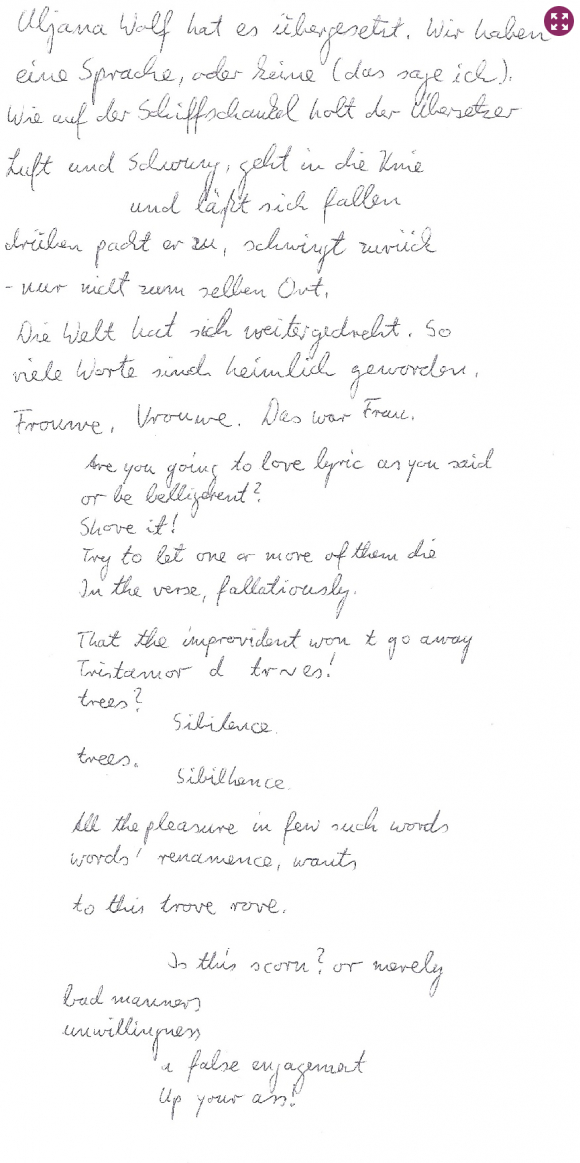 Uljana Wolf hat es übergesetzt. Wir haben
eine Sprache, oder keine (das sage ich).
Wie auf der Schiffschaukel holt der Übersetzer
Luft und Schwung, geht in die Knie
und läßt sich fallen
drüben packt er zu, schwingt zurück
- nur nicht zum selben Ort.
Die Welt hat sich weitergedreht. So
viele Worte sind heimlich geworden.
Frouwe, Vrouwe. Das war Frau.
Are you going to love lyric as you said
or be belligerent?
Shove it!
Try to let one or more of them die
In the verse, fallatiously.
That the improvident won t go away
Tristamor d
trees?
Sibilence
trees.
Sibilhence
All the pleasure in few such words
words' renamence, wants
to this trove rove.
Is this scorn? or merely
bad manners
unwillingness
a false engagement
Up your ass!